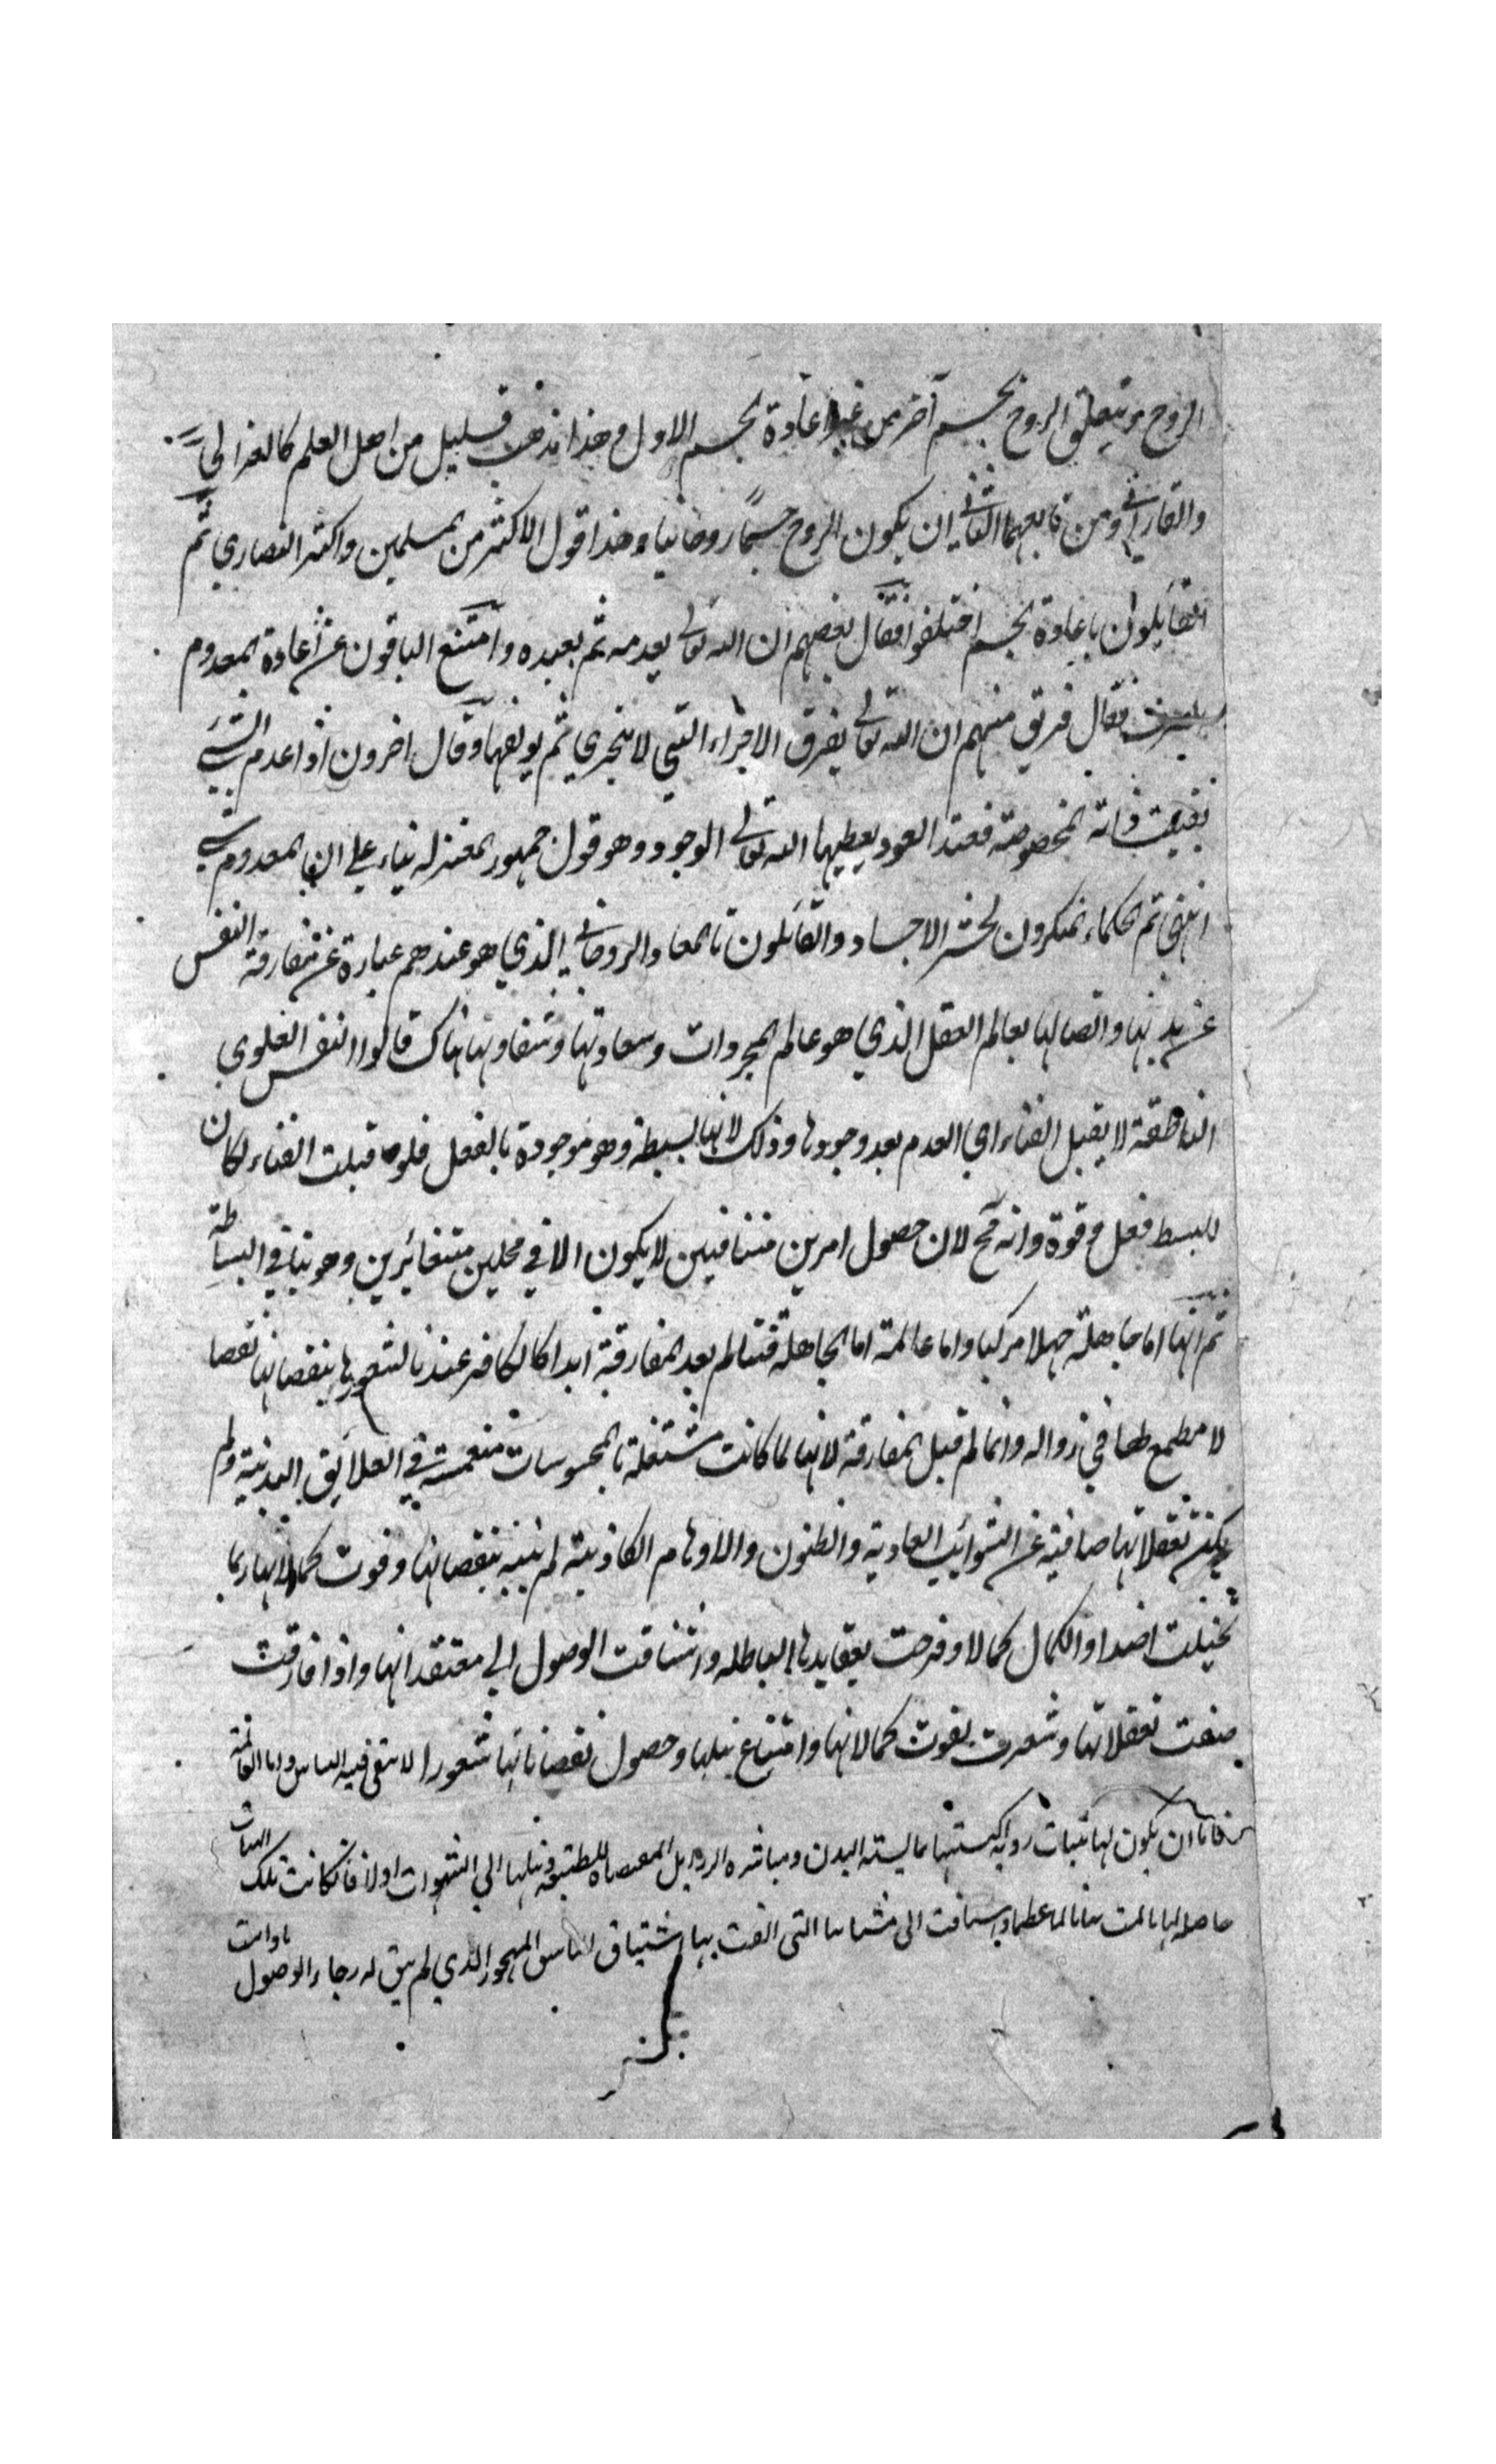 الروح ويتعلق الروح بجسم آخر من غير اعادة الجسم الاول وهذا مذهب قليل من اهل العلم كالغزالي
والفارابي ومن تابعهما الثاني ان يكون الروح جسمًا روحانيا وهذا قول الاكثر من المسلمين واكثر النصاري ثم
القائلون باعادة الجسم اختلفوا فقال بعضهم ان الله تعالى يعدمه ثم يعيده وامتنع الباقون عن اعادة المعدوم
فقال فريق منهم ان الله تعالى يفرق الاجزاء التي لا تتجزي ثم يولفها وقال اخرون اذا عدم الشيء
بقيت ذاته المخصوصة فعند العود يعطيها الله تعالى الوجود وهو قول جمهور المعتزله بناء على ان المعدوم شيء
انتهى ثم الحكماء المنكرون لحشر الاجساد والقائلون بالمعاد الروحاني الذي هو عندهم عبارة عن مفارقة النفس
عن بدنها واتصالها بعالم العقل الذي هو عالم المجردات وسعادتها وشقاوتها هناك قالوا النفس
الناطقة لا يقبل الفناء اي العدم بعد وجودها وذلك لانها بسيطة وهو موجودة بالفعل فلو قبلت الفناء لكان
للبسط فعل وقوة وانه مح لان حصول امرين متنافيين لا يكون الا في محلين متغائرين وهو ينافي البساطة
ثم انها اما جاهلة جهلا مركبا واما عالمة اما الجاهلة فتتالم بعد المفارقة ابدا كالكافر عندنا لشعورها بنقصانها نقصا
لا مطمع لها في زواله وانما لم قبل المفارقة لانها لما كانت مشتغلة بالمحسوسات منغمسة في العلائق البدنية ولم
يكن تعقلاتها صافية عن الشوائب العادية والظنون والاوهام الكاذبة لم ينبه بنقصانها وفوت كمالاتها ربما
تخيلت اضداد الكمال كمالا وفرحت بعقايدها الباطله واشتاقت الوصول الي معتقداتها واذا فارقت
صفت تعقلاتها وشعرت بفوت كمالاتها وامتناع نيلها وحصول نقصاناتها شعورا لا يبقى فيه الباس واما العالمة
فاما ان يكون لها هيات رديه اكتسبتها البدن ومباشره الرذايل وميلها الي الشهوات اولا فان كانت تلك الهيات
حاصله لها تالمت بها تالما عظما واشتاقت الى مشتهياتها التي الفت بها اشتياق المهجور الذي لم يبق له رجاء الوصول